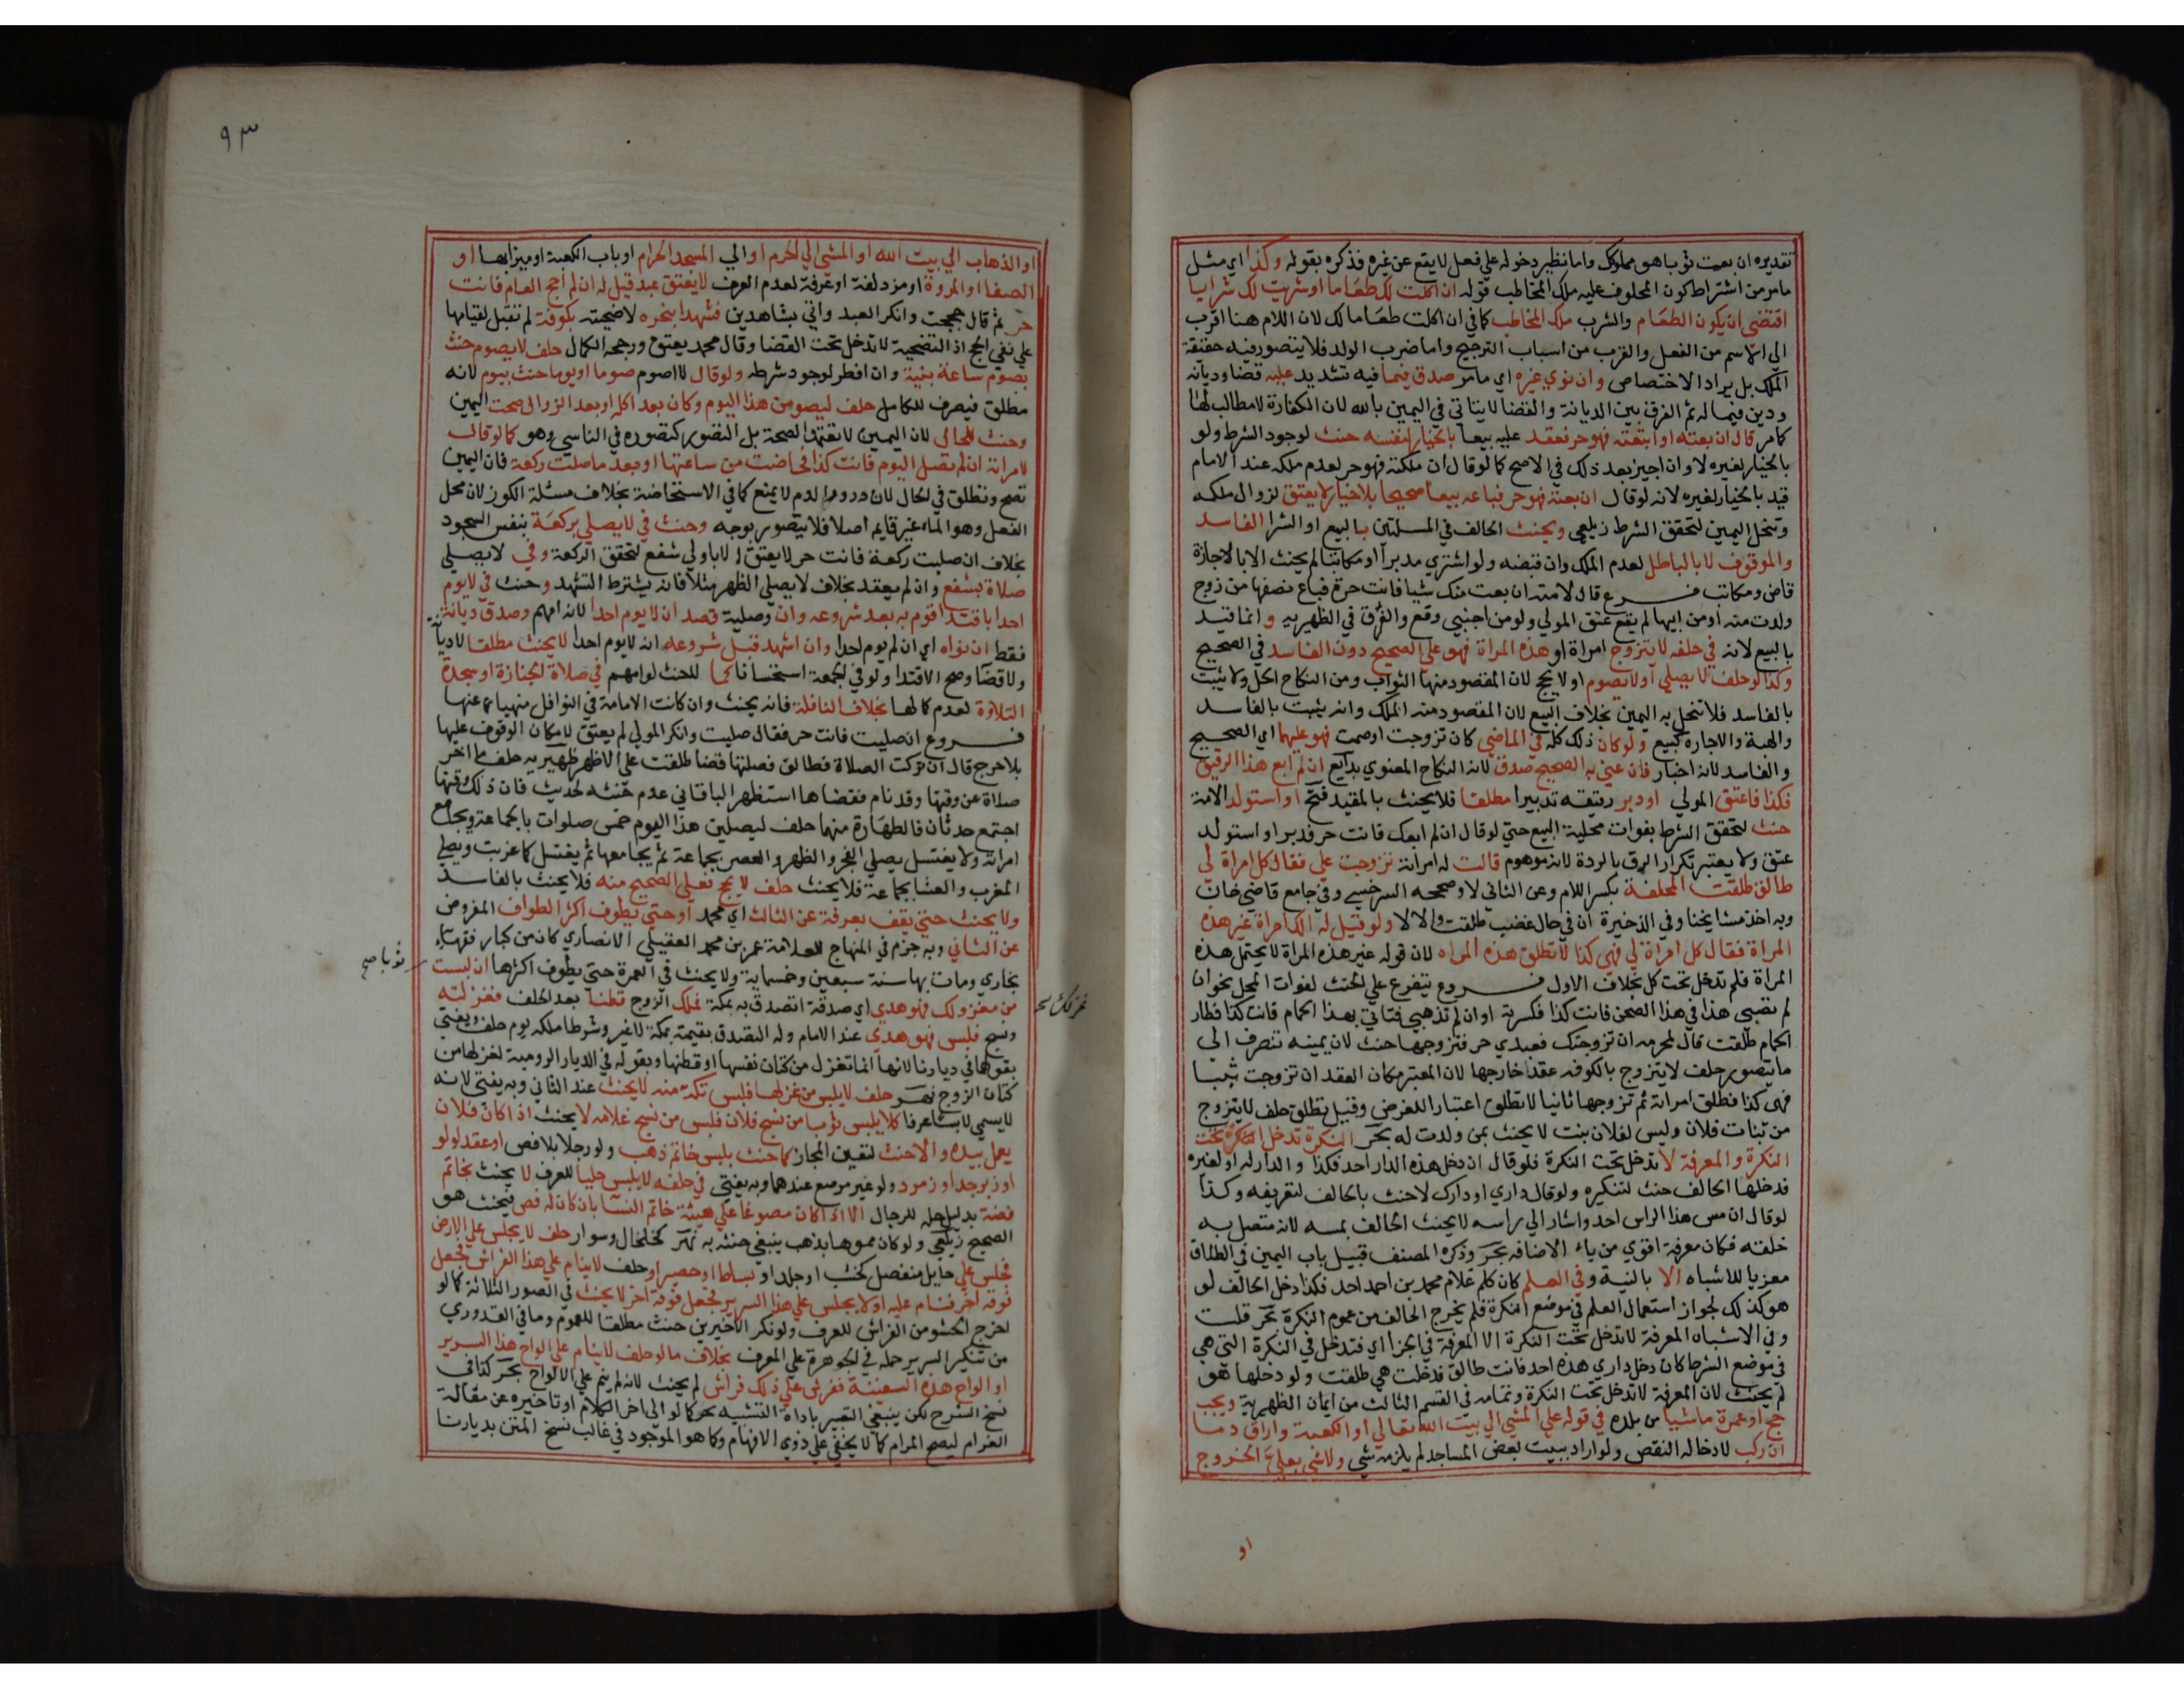 تقديره ان بعت ثوبا هو مملوكك واما نظير دخوله علي فعل لا يقع عن غيره فذكره بقوله وكذا اي مثل
ما مر من اشتراط كون المحلوف عليه ملك المخاطب قوله ان اكلت لك طعاما او شربت لك شرابا
اقتضي ان يكون الطعام والشرب ملك المخاطب كما في ان اكلت طعاما لك لان اللام هنا اقرب
الي الاسم من الفعل والقرب من اسباب الترجيح واما ضرب الولد فلا يتصور فيه حقيقة
الملك بل يراد الاختصاص وان نوي غيره اي ما مر صدق فيما فيه تشديد عليه قضا وديانة
ودين فيما له ثم الفرق بين الديانة والقضا لا يتاتي في اليمين بالله لان الكفارة لا مطالب لها
كما مر قال ان بعته او ابتعته فهو حر فعقد عليه بيعا بالخيار لنفسه حنث لوجود الشرط ولو
بالخيار لغيره لا وان اجيز بعد ذلك في الاصح كما لو قال ان ملكته فهو حر لعدم ملكه عند الامام
قيد بالخيار لغيره لانه لو قال ان بعته فهو حر فباعه بيعا صحيحا بلا خيار لا يعتق لزوال ملكه
وتنحل اليمين لتحقق الشرط زيلعي ويحنث الحالف في المسلتين بالبيع او الشرا الفاسد
والموقوف لا بالباطل لعدم الملك وان قبضه ولو اشتري مدبرا او مكاتبا لم يحنث الا بالاجازة
قاض ومكاتب فرع قال لامته ان بعت منك شيا فانت حرة فباع نصفها من زوج
ولدت منه او من ابيها لم يقع عتق المولي ولو من اجنبي وقع والفرق في الظهيريه وانما قيد
بالبيع لانه في حلفه لا يتزوج امراة او هذه المراة فهو علي الصحيح دون الفاسد في الصحيح
وكذا لو حلف لا يصلي او لا يصوم او لا يحج لان المقصود منها الثواب ومن النكاح الحل ولا يثبت
بالفاسد فلا تنحل به اليمين بخلاف البيع لان المقصود منه الملك وانه يثبت بالفاسد
والهبة والاجارة كبيع ولو كان ذلك كله في الماضي كان تزوجت او صمت فهو عليهما اي الصحيح
والفاسد لانه اخبار فان عني به الصحيح صدق لانه النكاح المعنوي بدايع ان لم ابع هذا الرقيق
فكذا فاعتق المولي او دبر رقيقه تدبيرا مطلقا فلا يحنث بالمقيد فتح او استولد الامة
حنث لتحقق الشرط بفوات محلية البيع حتي لو قال ان لم ابعك فانت حر فدبر او استولد
عتق ولا يعتبر تكرار الرق بالردة لانه موهوم قالت له امراته تزوجت علي فقال كل امراة لي
طالق طلقت المحلفة بكسر اللام وعن الثاني لا وصححه السرخسي وفي جامع قاضي خان
وبه اخذ مشايخنا وفي الذخيرة ان في حال غضب طلقت والا لا ولو قيل له الك امراة غير هذه
المراة فقال كل امراة لي فهي كذا لا تطلق هذه المراه لان قوله غير هذه المراة لا يحتمل هذه
المراة فلم تدخل تحت كل بخلاف الاول فروع يتفرع علي الحنث لفوات المحل نحو ان
لم تصبي هذا في هذا الصحن فانت كذا فكسرته او ان لم تذهبي فتاتي بهذا الحمام فانت كذا فطار
الحمام طلقت قال لمحرمه ان تزوجتك فعبدي حر فتزوجها حنث لان يمينه تنصرف الي
ما يتصور حلف لا يتزوج بالكوفه عقد خارجها لان المعتبر مكان العقد ان تزوجت ثيبا
فهي كذا فطلق امراته ثم تزوجها ثانيا لا تطلق اعتبارا للغرض وقيل تطلق حلف لا يتزوج
من بنات فلان وليس لفلان بنت لا يحنث بمن ولدت له بحر النكرة تدخل تحت
النكرة والمعرفة لا تدخل تحت النكرة فلو قال ان دخل هذه الدار احد فكذا والدار له او لغيره
فدخلها الحالف حنث لتنكيره ولو قال داري او دارك لا حنث بالحالف لتعريفه وكذا
لو قال ان مس هذا الراس احد واشار الي راسه لا يحنث الحالف بمسه لانه متصل به
خلقه فكان معرفة اقوي من ياء الاضافه بحر وذكره المصنف قبيل باب اليمين في الطلاق
معزيا للاشباه الا بالنية وفي العلم كان كلم غلام محمد بن احمد احد فكذا دخل الحالف لو
هو كذلك لجواز استعمال العلم في موضع النكرة فلم يخرج الحالف من عموم النكرة بحر قلت
وفي الاشباه المعرفة لا تدخل تحت النكرة الا المعرفة في الجزا اي فتدخل في النكرة التي هي
في موضع الشرط كان دخل داري هذه احد فانت طالق فدخلت هي طلقت ولو دخلها هو
لم يحنث لان المعرفة لا تدخل تحت النكرة وتمامه في القسم الثالث من ايمان الظهيرية ويجب
حج او عمرة ماشيا من بلده في قوله علي المشي الي بيت الله تعالي او الكعبة واراق دما
ان ركب لادخاله النقص ولو اراد ببيت بعض المساجد لم يلزمه شي ولا شي بعلي الخروج
او
٩٣
او الذهاب الي بيت الله او المشي الي الحرم او الي المسجد الحرام او باب الكعبة او ميزابها او
الصفا او المروة او مزدلفة او عرفة لعدم العرف لا يعتق عبد قيل له ان لم احج العام فانت
حر ثم قال حججت وانكر العبد واتي بشاهدين فشهدا بنحره لاضحيته بكوفة لم تقبل لقيامها
علي نفي الحج اذ التضحية لا تدخل تحت القضا وقال محمد يعتق ورجحه الكمال حلف لا يصوم حنث
بصوم ساعة بنية وان افطر لوجود شرطه ولو قال لا اصوم صوما او يوما حنث بيوم لانه
مطلق فيصرف للكامل حلف ليصومن هذا اليوم وكان بعد اكله او بعد الزوال صحت اليمين
وحنث للحال لان اليمين لا تعتمد الصحة بل التصور كتصوره في الناسي وهو كما لو قال
لامراته ان لم تصل اليوم فانت كذا فحاضت من ساعتها او بعد ما صلت ركعة فان اليمين
تصح وتطلق في الحال لان درور الدم لا يمنع كما في الاستحاضة بخلاف مسئلة الكوز لان محل
الفعل وهو الماء غير قايم اصلا فلا يتصور بوجه وحنث في لا يصلي بركعة بنفس السجود
بخلاف ان صليت ركعة فانت حر لا يعتق الا باولي شفع لتحقق الركعة وفي لا يصلي
صلاة بشفع وان لم يعقد بخلاف لا يصلي الظهر مثلا فانه يشترط التشهد وحنث في لا يوم
احدا باقتدا قوم به بعد شروعه وان وصلية قصد ان لا يوم احدا لانه امهم وصدق ديانة
فقط ان نواه اي ان لم يوم احدا وان اشهد قبل شروعه انه لا يوم احدا لا يحنث مطلقا لا ديانة
ولا قضا وصح الاقتدا ولو في الجمعة استحسانا كما لا حنث لو امهم في صلاة الجنازة او سجدة
التلاوة لعدم كمالها بخلاف النافلة فانه يحنث وان كانت الامامة في النوافل منهيا عنها
فروع ان صليت فانت حر فقال صليت وانكر المولي لم يعتق لامكان الوقوف عليها
بلا حرج قال ان تركت الصلاة فطالق فصلتها قضا طلقت علي الاظهر ظهيريه حلف ما اخر
صلاة عن وقتها وقد نام فقضاها استظهر الباقاني عدم حنثه لحديث فان ذلك وقتها
اجتمع حدثان فالطهارة منهما حلف ليصلين هذا اليوم خمس صلوات بالجماعة ويجامع
امراته ولا يغتسل يصلي الفجر والظهر والعصر بجماعة ثم يجامعها ثم يغتسل كما غربت ويصلي
المغرب والعشا بجماعة فلا يحنث حلف لا يحج فعلي الصحيح منه فلا يحنث بالفاسد
ولا يحنث حتي يقف بعرفة عن الثالث اي محمد او حتي يطوف اكثر الطواف المفروض
عن الثاني وبه جزم في المنهاج للعلامة عمر بن محمد العقيلي الانصاري كان من كبار فقهاء
بخاري ومات بها سنة سبعين وخمسماية ولا يحنث في العمرة حتي يطوف اكثرها ان لبست
ثوبا صح
من مغزولك فهو هدي اي صدقة اتصدق به بمكة فملك الزوج قطنا بعد الحلف فغزلته
ونسج فلبس فهو هدي عند الامام وله التصدق بقيمته بمكة لا غير وشرطا ملكه يوم حلف ويفتي
بقولهما في ديارنا لانها انما تغزل من كتان نفسها او قطنها وبقوله في الديار الرومية لغزلها من
كتان الزوج نهر حلف لا يلبس من غزلها فلبس تكة منه لا يحنث عند الثاني وبه يفتي لانه
لا يسمي لابسا عرفا كلا يلبس ثوبا من نسج فلان فلبس من نسج غلامه لا يحنث اذا كان فلان
يعمل بيده والا حنث لتعين المجاز كما حنث بلبس خاتم ذهب ولو رجلا بلا فص او عقد لولو
او زبرجد او زمرد ولو غير مرصع عندهما وبه يفتي في حلفه لا يلبس حليا للعرف لا يحنث بخاتم
فضة بدليل حله للرجال الا اذا كان مصوغا علي هيئة خاتم النسا بان كان له فص فيحنث هو
الصحيح زيلعي ولو كان مموها بذهب ينبغي حنثه به نهر كخلخال وسوار حلف لا يجلس علي الارض
فجلس علي حايل منفصل كخشب او جلد او بساط او حصير او حلف لا ينام علي هذا الفراش فجعل
فوقه اخر فنام عليه او لا يجلس علي هذا السرير فجعل فوقه اخر لا يحنث في الصور الثلاثة كما لو
اخرج الحشو من الفراش للعرف ولو نكر الاخيرين حنث مطلقا للعموم وما في القدوري
من تنكير السرير حمله في الجوهرة علي المعرف بخلاف ما لو حلف لا ينام علي الواح هذا السرير
او الواح هذه السفينة ففرش علي ذلك فراش لم يحنث لانه لم ينم علي الالواح بحر كذا في
نسخ الشرح لكن ينبغي التعبير باداة التشبيه نحو كما لو الي اخر الكلام او تاخيره عن مقالة
الغرام ليصح المرام كما لا يخفي علي ذوي الافهام وكما هو الموجود في غالب نسخ المتن بديارنا